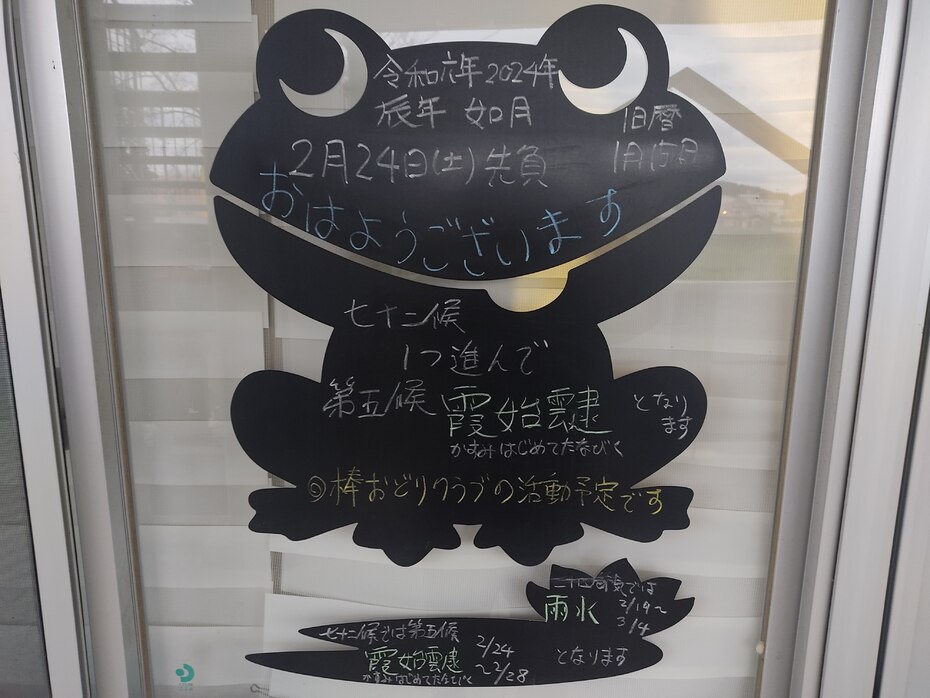 令和六年2024年
辰年 如月
旧暦
1月15日
2月24日(土)先負
おはようございます
七十二候
1つ進んで
第五候 霞始靆 となります
かすみはじめてたなびく
◎棒おどりクラブの活動予定です
二十四節気では
雨水 2/19〜3/4
七十二候では第五候
霞始靆 2/24〜2/28
かすみはじめてたなびく
となります